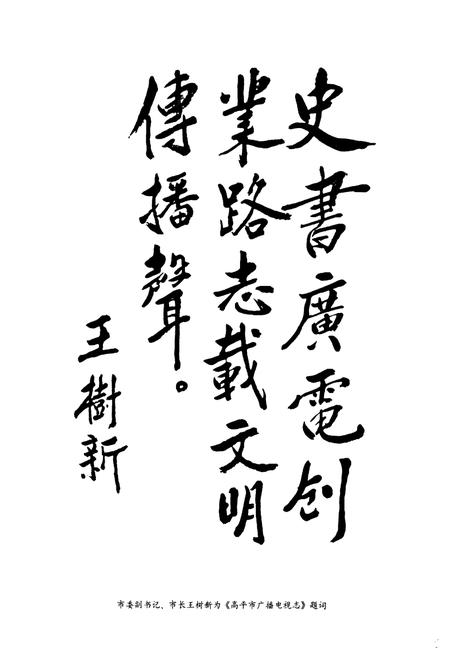 史書廣電創
業路志載文明
傳播聲。
王樹新
市委副书记、市长王树新为《高平市广播电视志》题词